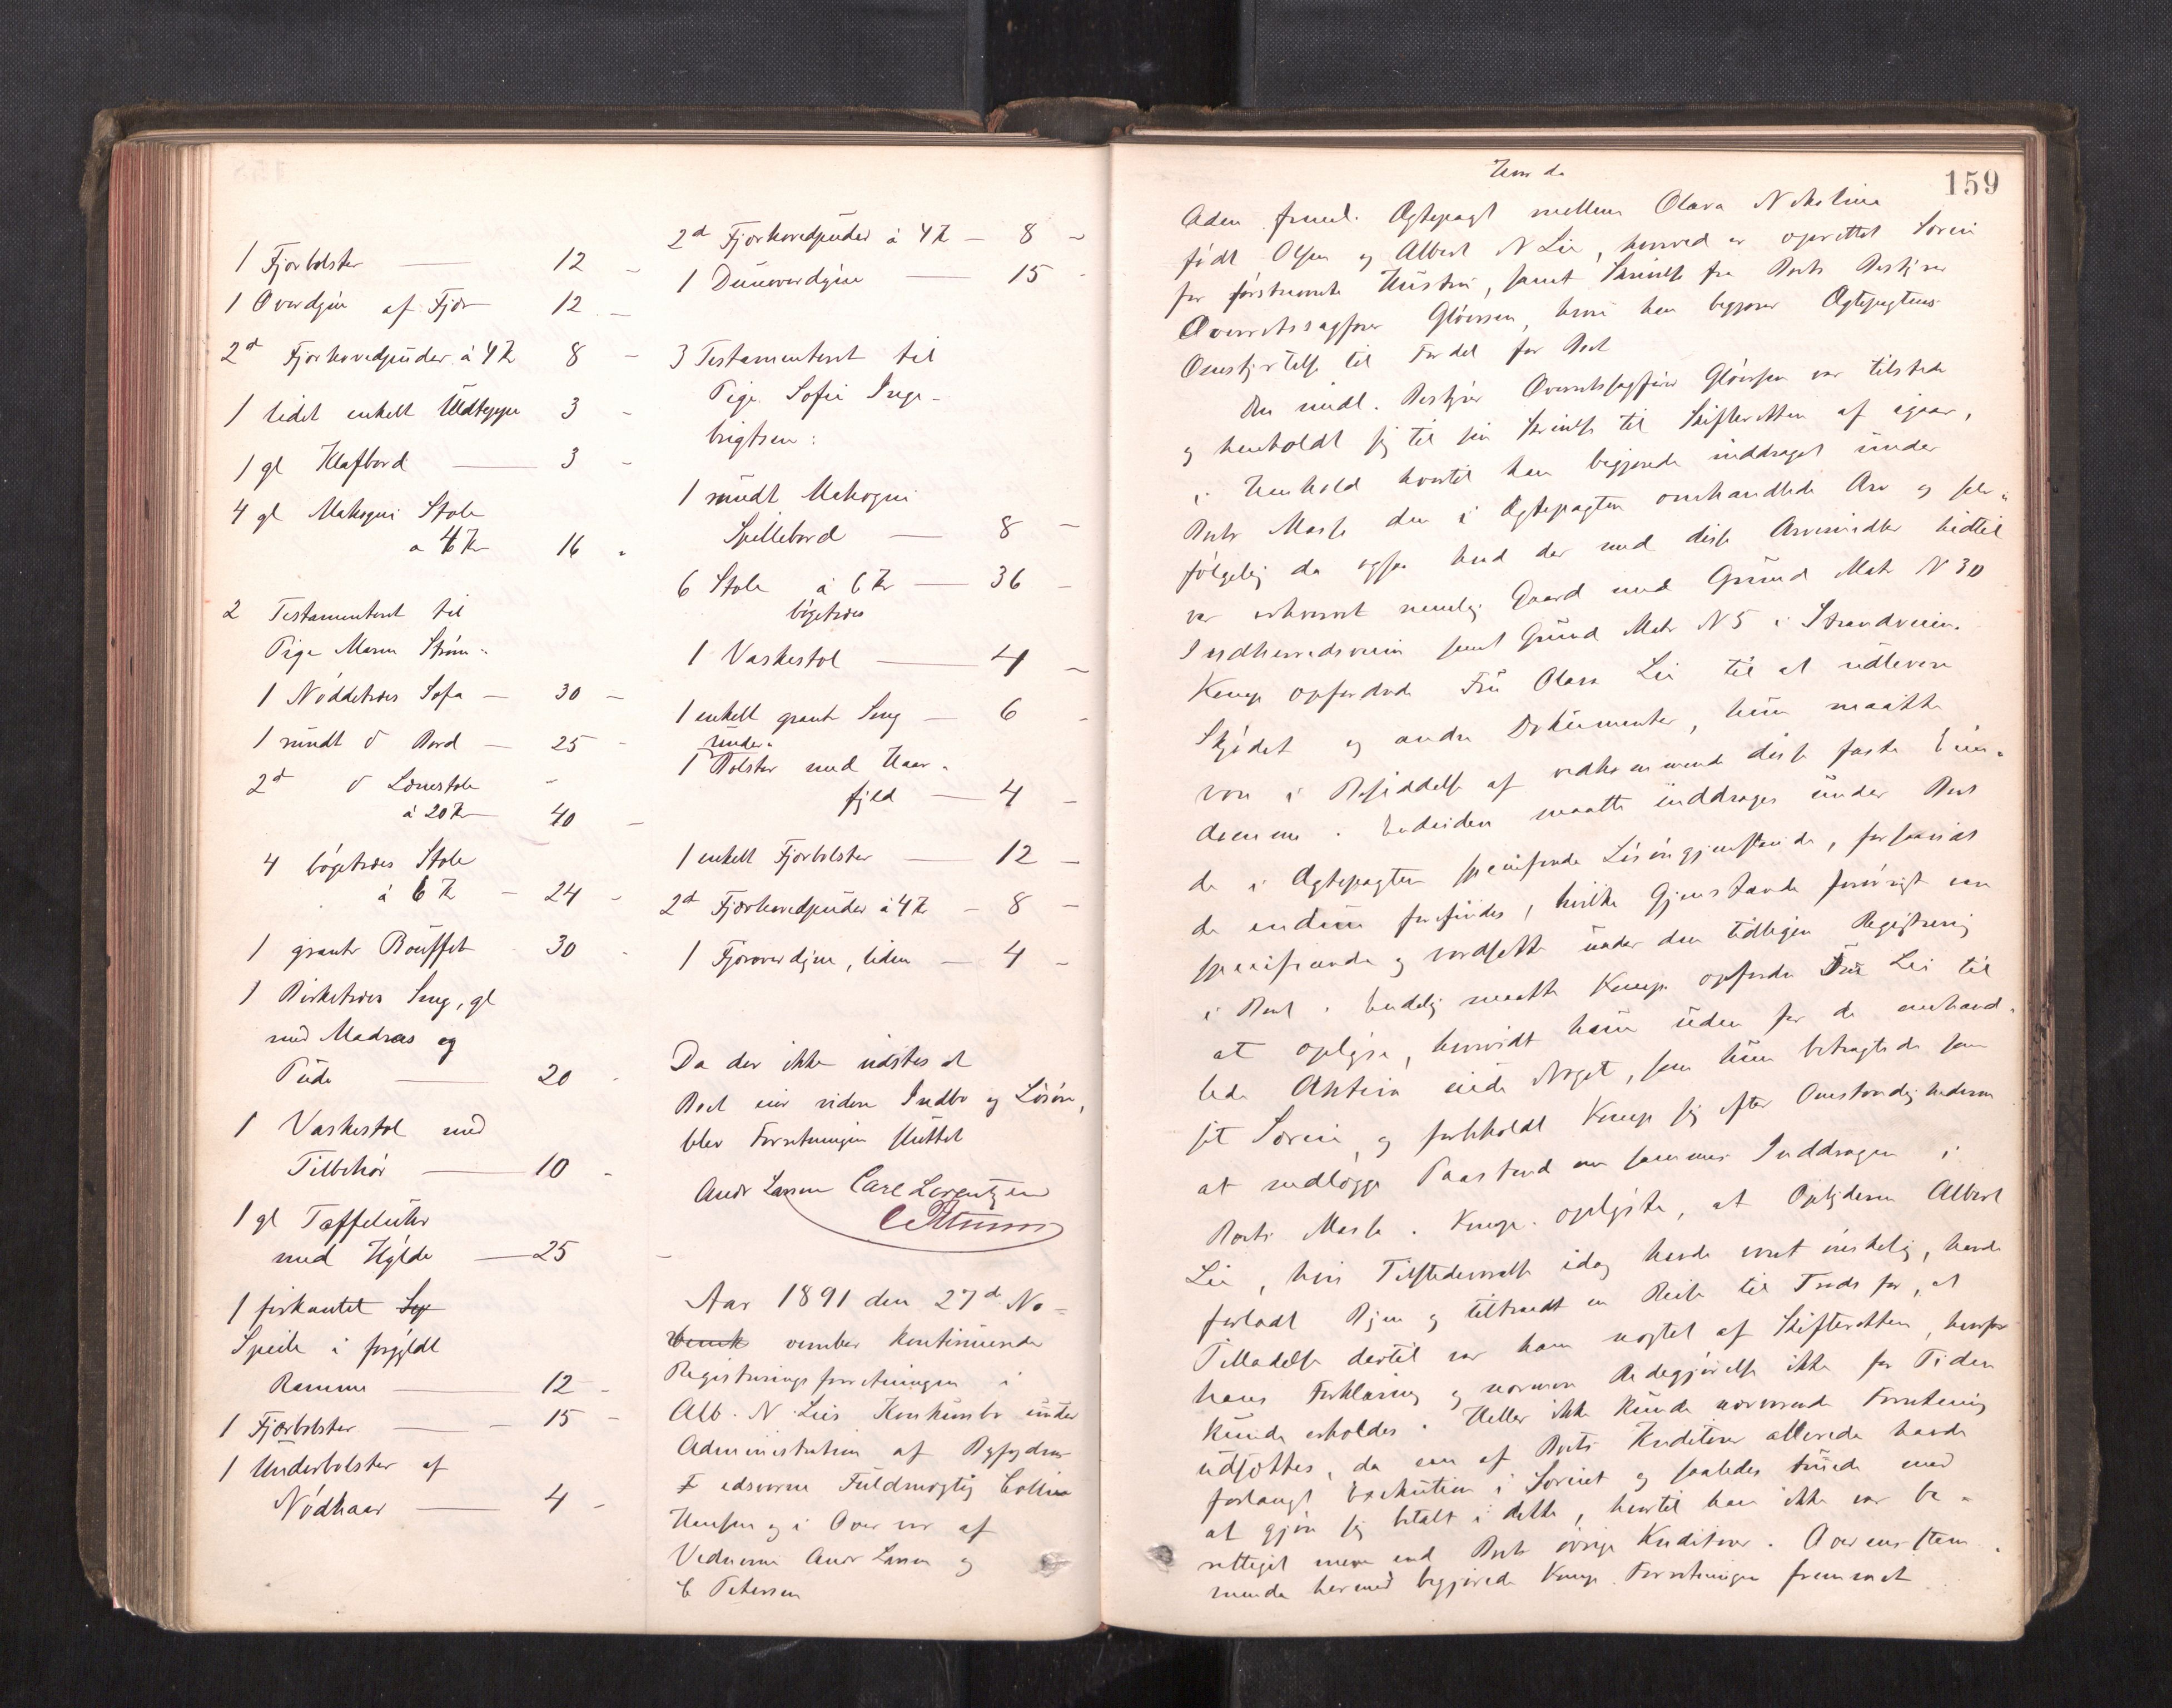 1 Fjærbolster — 12 –
1 Overdyne af Fjær 12 –
2de Fjærhovedpuder à 4 Kr 8 –
1 lidet enkelt Uldteppe 3 –
1 gl Klafbord — 3 –
4 gl Mahogni Stole
a 4 Kr 16 „
2 Testamenteret til
Pige Maren Strøm:
1 Nøddetræes Sofa — 30 –
1 rundt d Bord — 25 –
2de d Lænestole –
à 20 Kr 40 –
4 bøgetræes Stole
à 6 Kr – 24 –
1 grønt Bouffet 30 –
1 Birketræes Seng, gl
med Madras og
Pude — 20 –
1 Vaskestol med
Tilbehør — 10 –
1 gl Taffeluhr
med Hylde — 25 –
1 firkantet
Speile i forgyldt
Ramme — 12 –
1 Fjærbolster — 15 –
1 Underbolster af
Nødhaar — 4 –
2de Fjærhovedpuder à 4 Kr – 8 –
1 Dunoverdyne — 15 –
3 Testamenteret til
Pige Sofie Inge-
brigtsen:
1 rundt Mahogni
Spillebord — 8 –
6 Stole à 6 Kr — 36 –
bøgetræes
1 Vaskestol — 4 –
1 enkelt grønt Seng — 6 –
under-
1 Bolster med Haar-
fyld — 4 –
1 enkelt Fjærbolster — 12 –
2de Fjærhovedpuder à 4 Kr – 8 –
1 Fjæroverdyne, liden — 4 –
Da der ikke udstedet
Boet eier videre Indbo og Løsøre,
blev Forretningen sluttet
Andr Larsen Carl Lorentzen
Aar 1891 den 27de No-
vember kontinuerede
Registreringsforretningen i
Alb. N. Lies Konkursbo under
Administration af Byfogdens
edsvorne Fuldmægtig Collin
Hansen og i Overvær af
Vidnerne Andr Larsen og
C Petersen
159
Hvor da
Aden freml. Ægtepagt mellem Olava Nikoline
født Olsen og Albert N Lie, hvorved er oprettet Særeie
for førstnævnte Hustru, samt Skrivelse fra Boets Bestyrer
Overretssagfører Gløersen, hvori han begjærer Ægtepagtens
Omstjørtelse til Fordel for Boet
Den midl. Bestyrer Overretssagfører Gløersen var tilstede
og henholdt sig til sin Skrivelse til Skifteretten af igaar,
i Henhold hvortil han begjærede inddraget under
Boets Masse den i Ægtepagten omhandlede Arv og selv-
følgelig da ogsaa hvad der med disse Arvemidler hidtil
var erhvervet nemlig Gaard med Grund Matr N 30
Indherredsveien samt Grund Matr N 5 i Strandveien.
Komp opfordrede Fru Olava Lie til at udlevere
Skjødet og andre Dokumenter, hun maatte
være i Besiddelse af vedkommende disse faste Eien-
domme. Endvidere maatte inddrages under Boet
de i Ægtepagten specificerede Løsøregjenstande, forsaavidt
de endnu forefindes, hvilke Gjenstande forøvrigt var
specificerede og værdsatte under den tidligere Registrering
i Boet. Endelig maatte Komp. opfordre Fru Lie til
at oplyse, hvorvidt hun uden for de omhand-
lede Aktiva eiede Noget, som hun betragtede som
sit Særeie, og forbeholdt Komp sig efter Omstændighederne
at nedlægge Paastand om sammes Inddragen i
Boets Masse. Komp. oplyste, at Opbyderen Albert
Lie, hvis Tilstedeværelse idag havde været ønskelig, havde
forladt Byen og tiltraadt en Reise til Trods for, at
Tilladelse dertil var ham nægtet af Skifteretten, hvorfor
hans Forklaring og nærmere Redegjørelse ikke for Tiden
kunde erholdes. Heller ikke kunde nærværende Forretning
udsættes, da en af Boets Kreditorer allerede havde
forlangt Exekution i Særeiet og saaledes truede med
at gjøre sig betalt i dette, hvortil han ikke var be-
rettiget mere end Boets øvrige Kreditorer. Overensstem-
mende hermed begjærede Komp. Forretningen fremmet